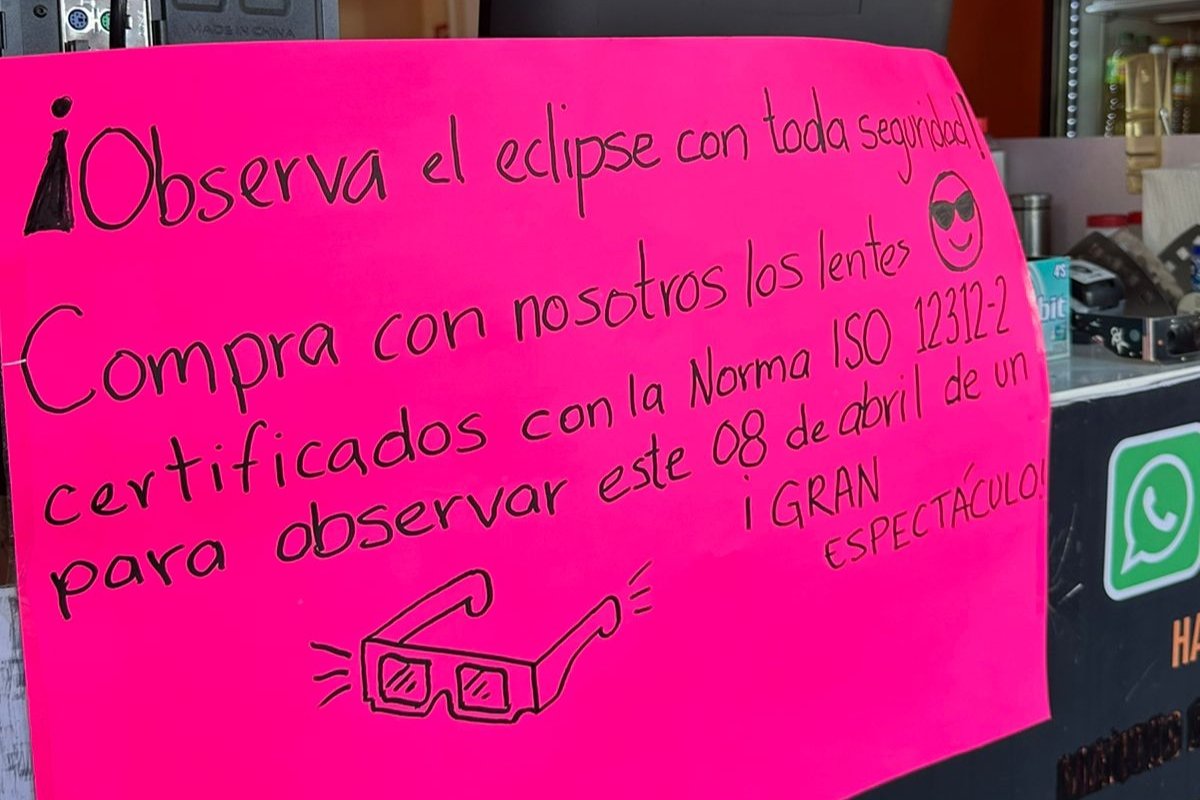 MADE IN CHINA
¡Observa el eclipse con toda seguridad!
Compra con nosotros los lentes
certificados con la Norma ISO 12312-2
para observar este 08 de abril de un
¡GRAN
ESPECTÁCULO!
4'S
bit
HA